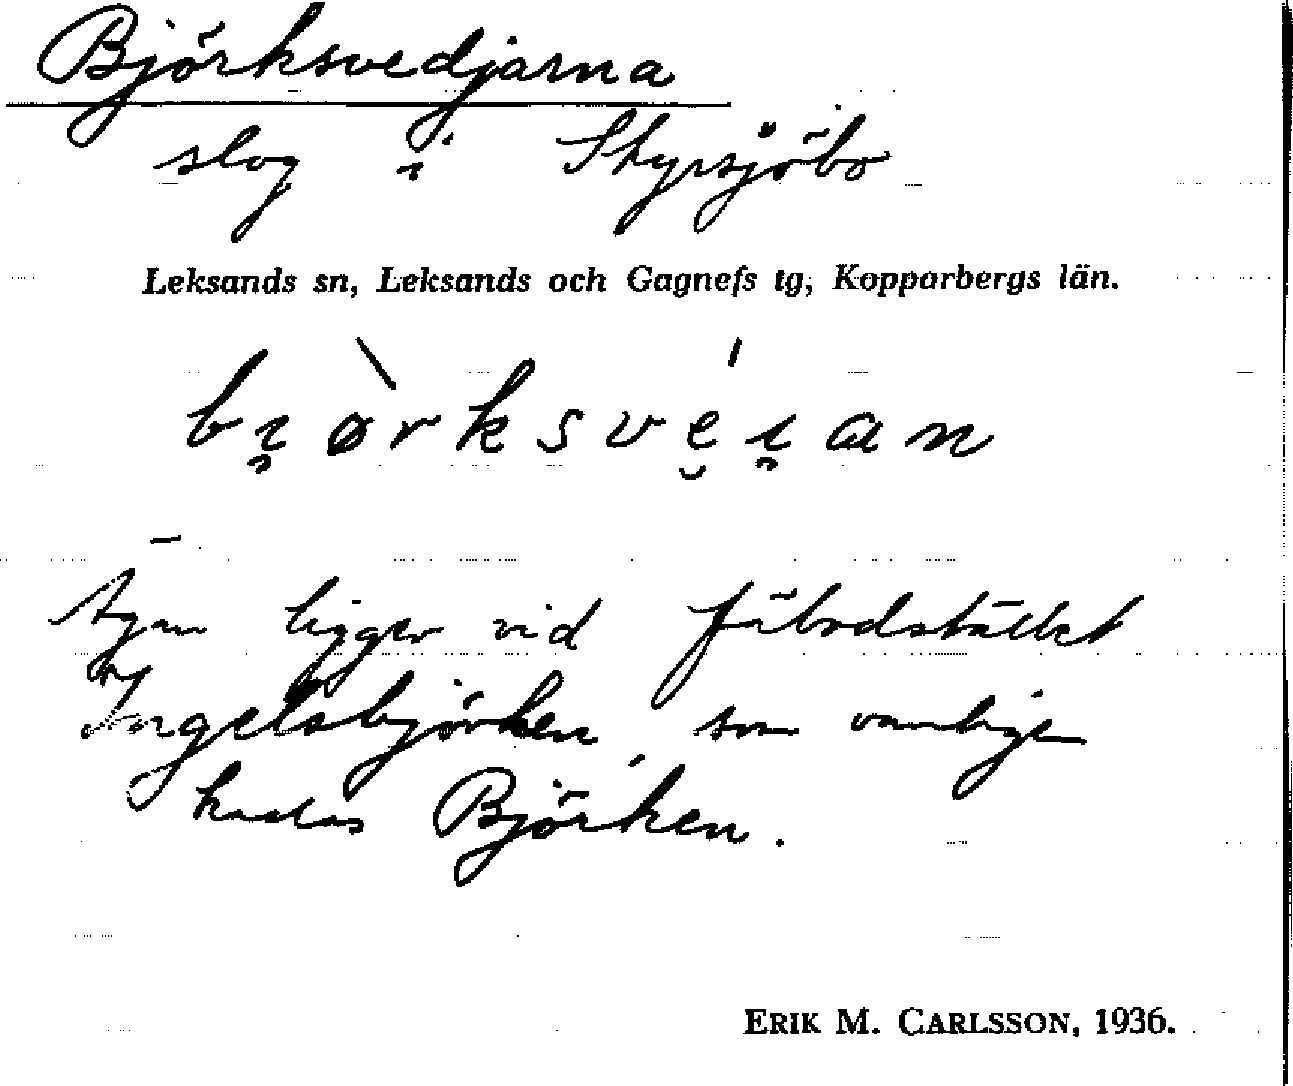 Björksvedjarna
slog i Styrsjöbo
Leksands sn, Leksands och Gagnefs tg, Kopparbergs län.
bi̯ø̀rksvé̮i̯an
Ägan ligger vid fäbodstället
Ingelsbjörken, som vanligen
kallas Björken.
ERIK M. CARLSSON, 1936.